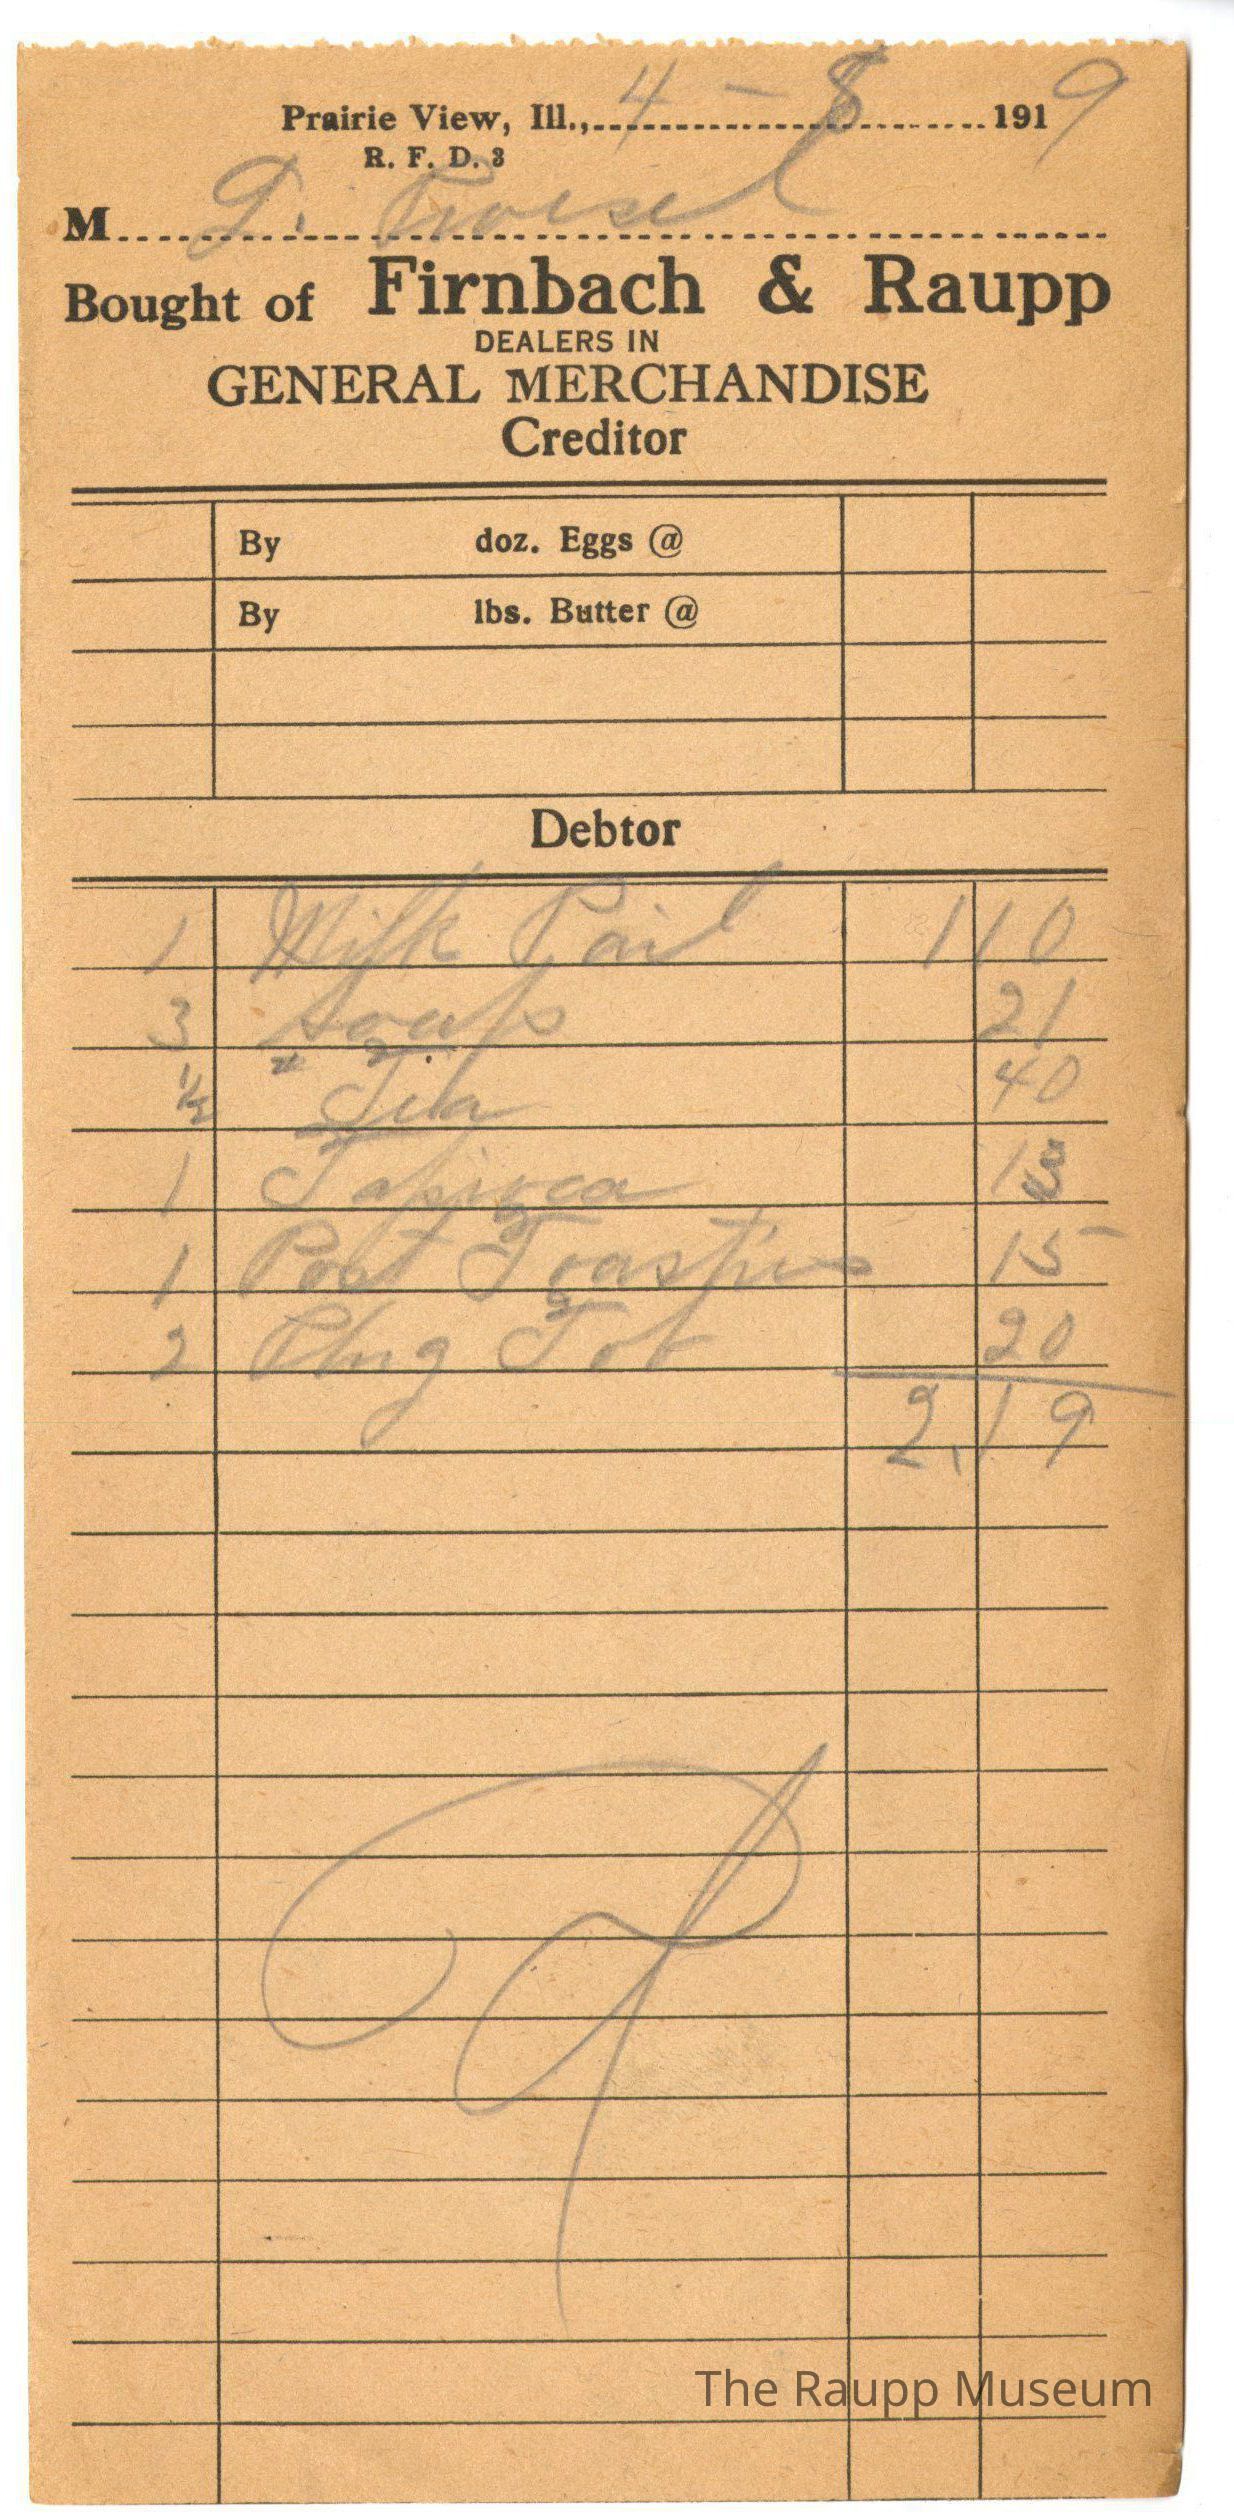 Prairie View, Ill., 4 - 8 1919
R. F. D. 3
M G. Troesel
Bought of Firnbach & Raupp
DEALERS IN
GENERAL MERCHANDISE
Creditor
By doz. Eggs @
By lbs. Butter @
Debtor
1 Milk Pail 1 10
3 Soap 21
1/2 Tea 40
1 Tapioca 13
1 Post Toasties 15
2 Plug Tob 20
2.19
The Raupp Museum